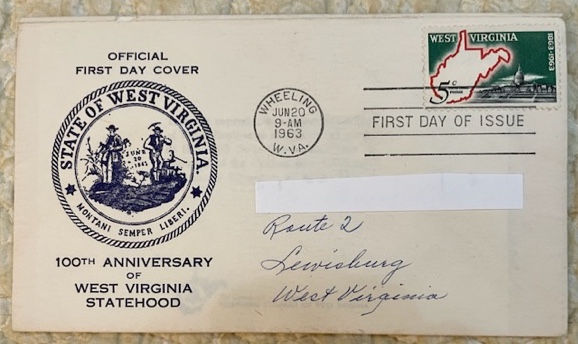 OFFICIAL
FIRST DAY COVER
STATE OF WEST VIRGINIA.
JUNE
20
1863
MONTANI SEMPER LIBERI.
100TH ANNIVERSARY
OF
WEST VIRGINIA
STATEHOOD
WHEELING
JUN 20
9-AM
1963
W.VA.
WEST VIRGINIA
1863-1963
5c
FIRST DAY OF ISSUE
Route 2
Lewisburg
West Virginia